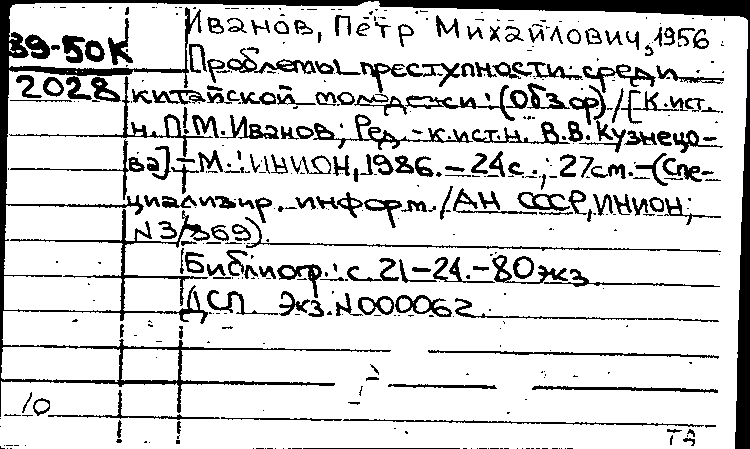 Иванов, Петр Михайлович, 1956
39-50К
Проблемы преступности среди
2028
китайской молодежи: (Обзор) / [К.ист.
н. П.М. Иванов; Ред. - к.ист.н. В.В. Кузнецо-
ва]. - М.: ИНИОН, 1986. - 24с.; 27см. - (Спе-
циализир. информ. / АН СССР, ИНИОН;
N3/369).
Библиогр.: с. 21-24. - 80 экз.
ДСП. Экз. N000062.
10